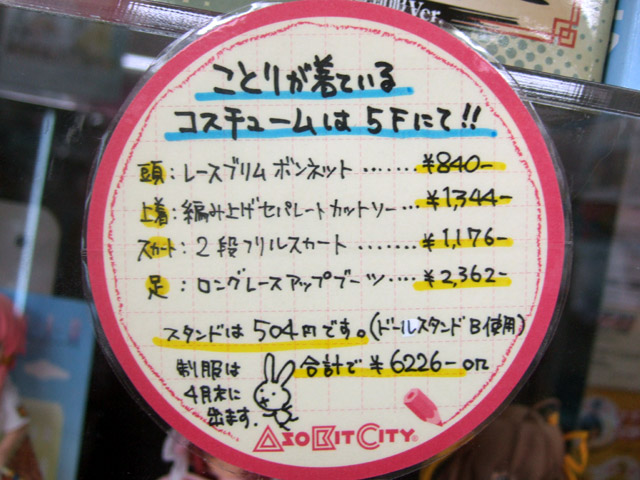 ことりが着ている
コスチュームは5Fにて!!
頭:レースブリムボンネット……¥840-
上着:編み上げセパレートカットソー…¥1,344-
スカート:2段フリルスカート……¥1,176-
足:ロングレースアップブーツ…¥2,362-
スタンドは504円です。(ドールスタンドB使用)
合計で¥6226- on
制服は
4月末に
出ます.
ASOBITCITY
Ver.